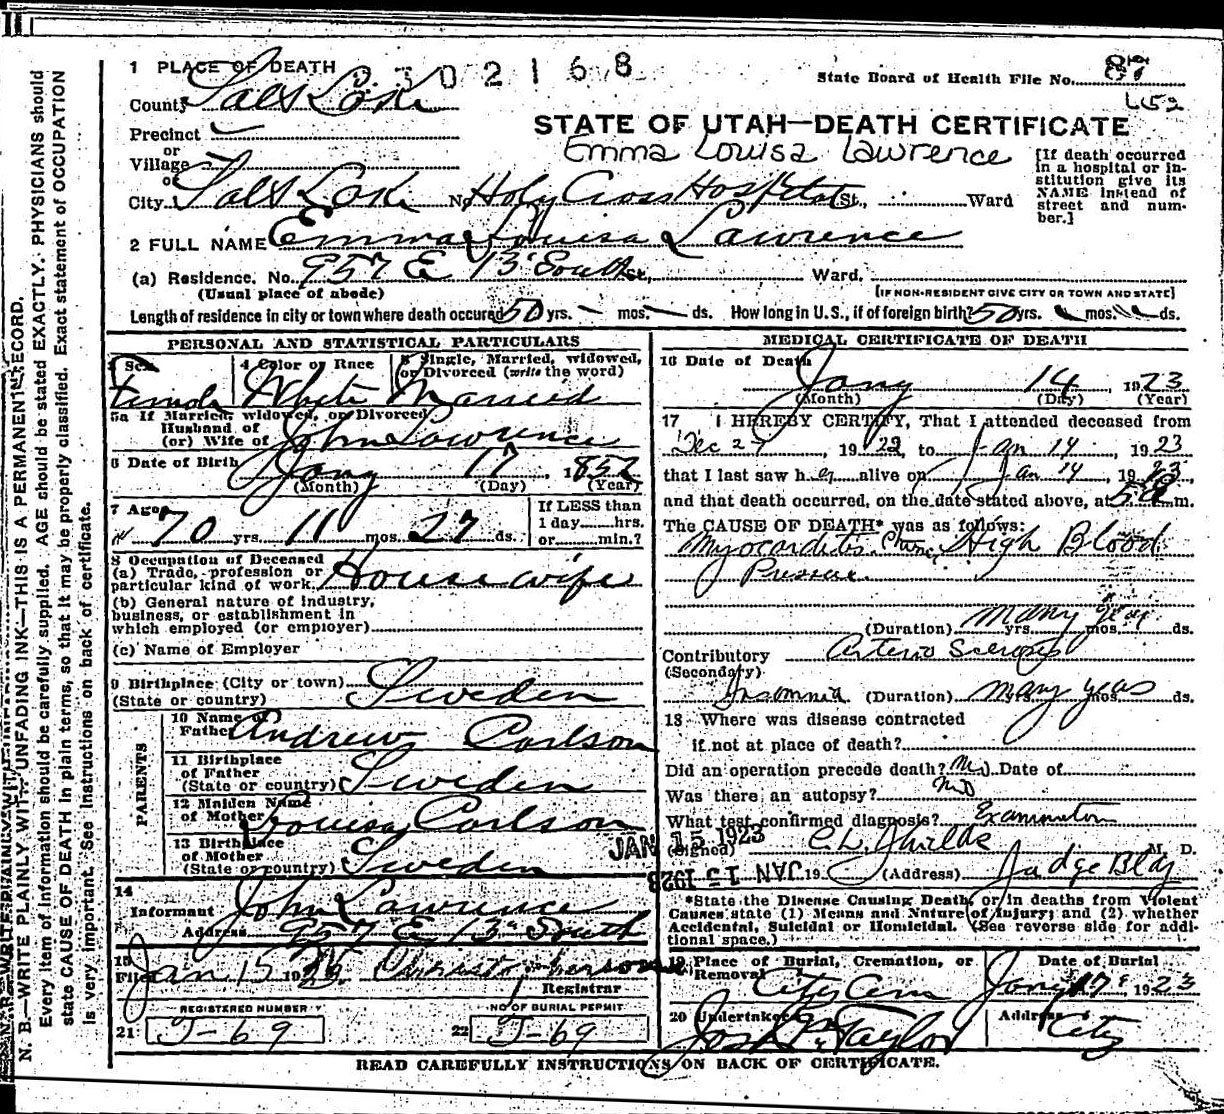 1 PLACE OF DEATH
302168
State Board of Health File No. 87
County Salt Lake
652
Precinct
or
Village
or
STATE OF UTAH—DEATH CERTIFICATE
Emma Louisa Lawrence
[If death occurred in a hospital or institution give its NAME instead of street and number.]
City Salt Lake No. Holy Cross Hospital St., Ward
2 FULL NAME Emma Louisa Lawrence
(a) Residence. No. 957 E 13 South St., Ward.
(Usual place of abode)
[IF NON-RESIDENT GIVE CITY OR TOWN AND STATE]
Length of residence in city or town where death occured 50 yrs. — mos. — ds. How long in U.S., if of foreign birth? 50 yrs. mos. ds.
PERSONAL AND STATISTICAL PARTICULARS
3 Sex
4 Color or Race
5 Single, Married, widowed, or Divorced (write the word)
Female White Married
5a If Married, widowed, or Divorced
Husband of
(or) Wife of John Lawrence
6 Date of Birth Jany 17, 1852
(Month) (Day) (Year)
7 Age
70 yrs. 11 mos. 27 ds.
If LESS than
1 day......hrs.
or......min.?
8 Occupation of Deceased
(a) Trade, profession or
particular kind of work Housewife
(b) General nature of industry,
business, or establishment in
which employed (or employer)
(c) Name of Employer
9 Birthplace (City or town)
(State or country) Sweden
PARENTS
10 Name of
Father Andrew Carlson
11 Birthplace
of Father
(State or country) Sweden
12 Maiden Name
of Mother Louisa Carlson
13 Birthplace
of Mother
(State or country) Sweden
14
Informant John Lawrence
Address 957 E 13 South
15
Filed Jan 15 1923
Registrar
REGISTERED NUMBER
21 J-69
NO OF BURIAL PERMIT
22 J-69
MEDICAL CERTIFICATE OF DEATH
16 Date of Death
Jany 14, 1923
(Month) (Day) (Year)
17 I HEREBY CERTIFY, That I attended deceased from
Dec 27, 1922, to Jan 14, 1923
that I last saw her alive on Jan 14, 1923,
and that death occurred, on the date stated above, at 5 a m.
The CAUSE OF DEATH* was as follows:
Myocarditis, High Blood
Pressure
many years
(Duration) yrs. mos. ds.
Contributory Arterio Sclerosis
(Secondary)
Insomnia (Duration) many years yrs. mos. ds.
18 Where was disease contracted
if not at place of death?
Did an operation precede death? No Date of
Was there an autopsy? No
What test confirmed diagnosis? Examination
JAN 15 1923
(Signed) C. L. Shields M. D.
JAN 15 1923
19 (Address) Judge Bldg
*State the Disease Causing Death, or in deaths from Violent
Causes state (1) Means and Nature of Injury; and (2) whether
Accidental, Suicidal or Homicidal. (See reverse side for additional space.)
19 Place of Burial, Cremation, or
Removal City Cem
Date of Burial
Jany 17, 1923
20 Undertaker Jos. Taylor
Address City
READ CAREFULLY INSTRUCTIONS ON BACK OF CERTIFICATE.
N. B.—WRITE PLAINLY WITH UNFADING INK—THIS IS A PERMANENT RECORD.
Every item of information should be carefully supplied. AGE should be stated EXACTLY. PHYSICIANS should
state CAUSE OF DEATH in plain terms, so that it may be properly classified. Exact statement of OCCUPATION
is very important. See instructions on back of certificate.